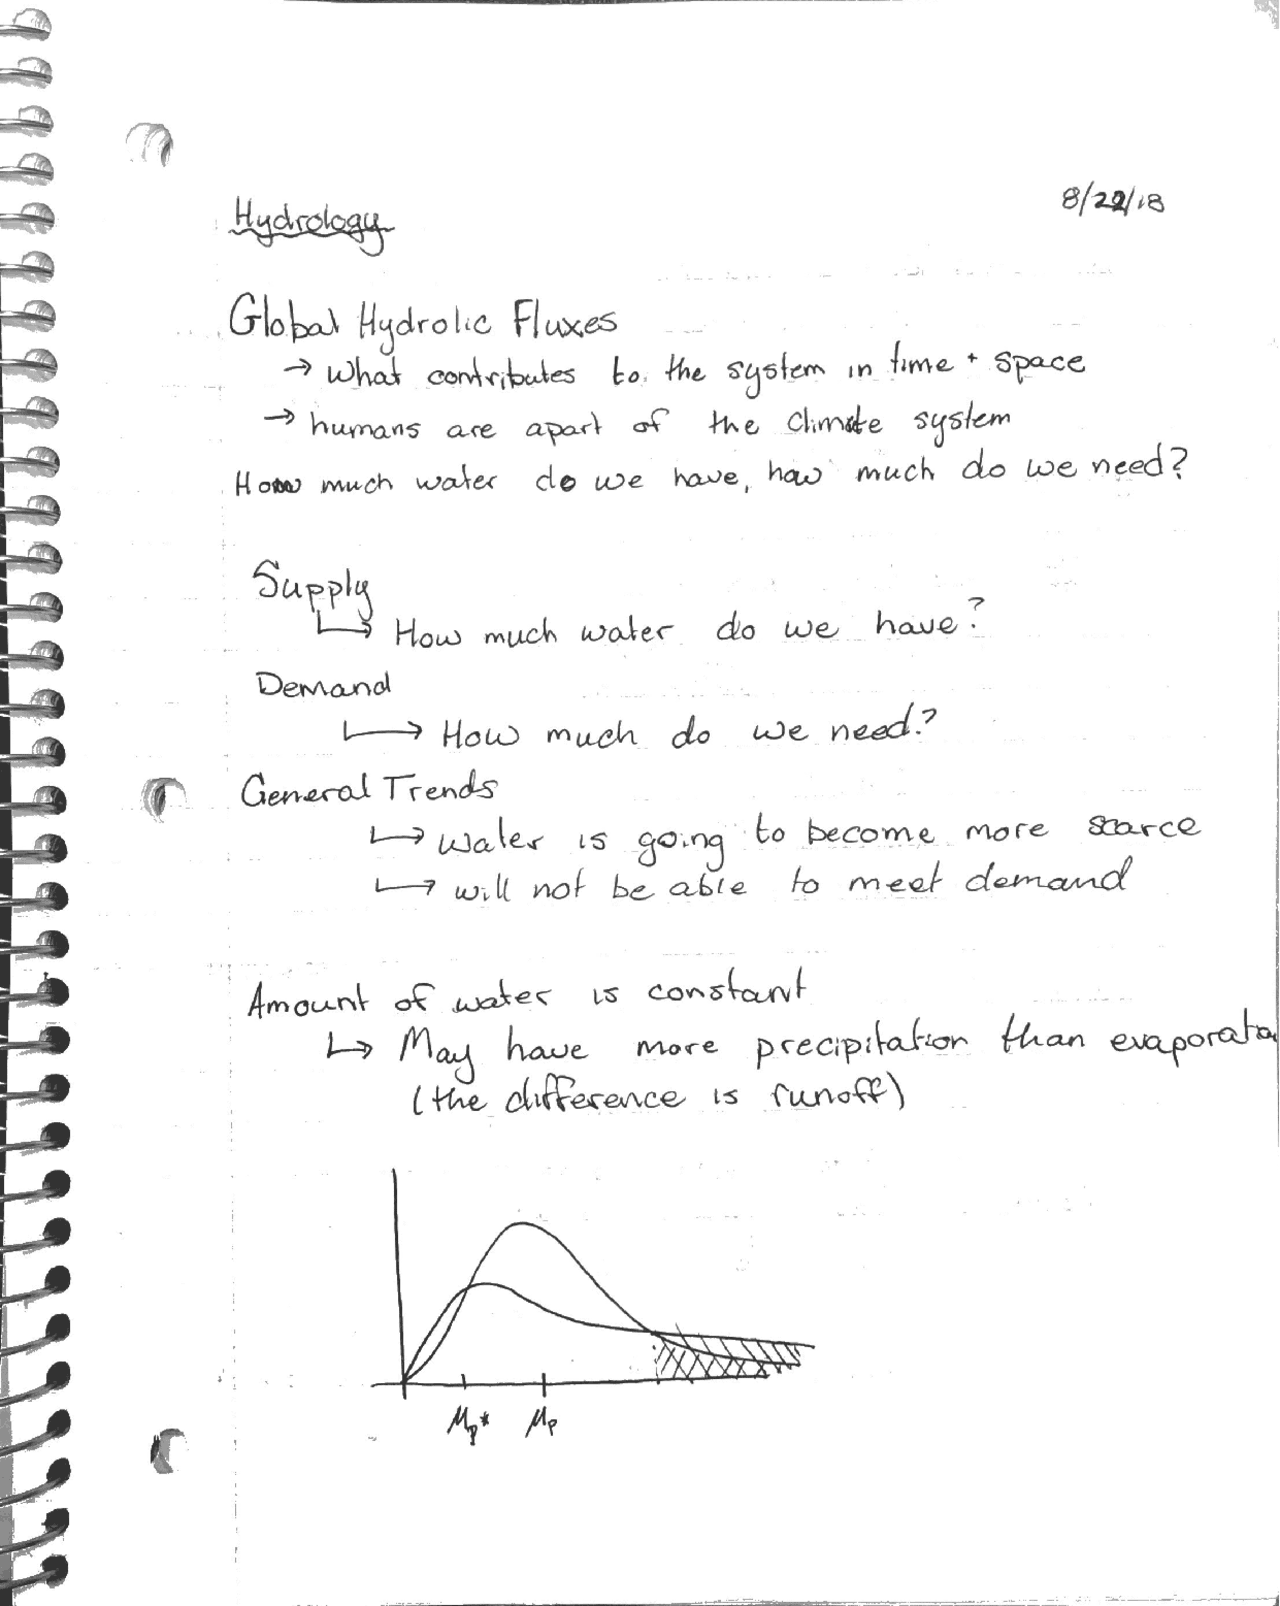 8/22/18
Hydrology
Global Hydrolic Fluxes
→ What contributes to the system in time + space
→ humans are apart of the climate system
How much water do we have, how much do we need?
Supply
↳ How much water do we have?
Demand
↳ How much do we need?
General Trends
↳ water is going to become more scarce
↳ will not be able to meet demand
Amount of water is constant
↳ May have more precipitation than evaporatio
(the difference is runoff)
μp* μp